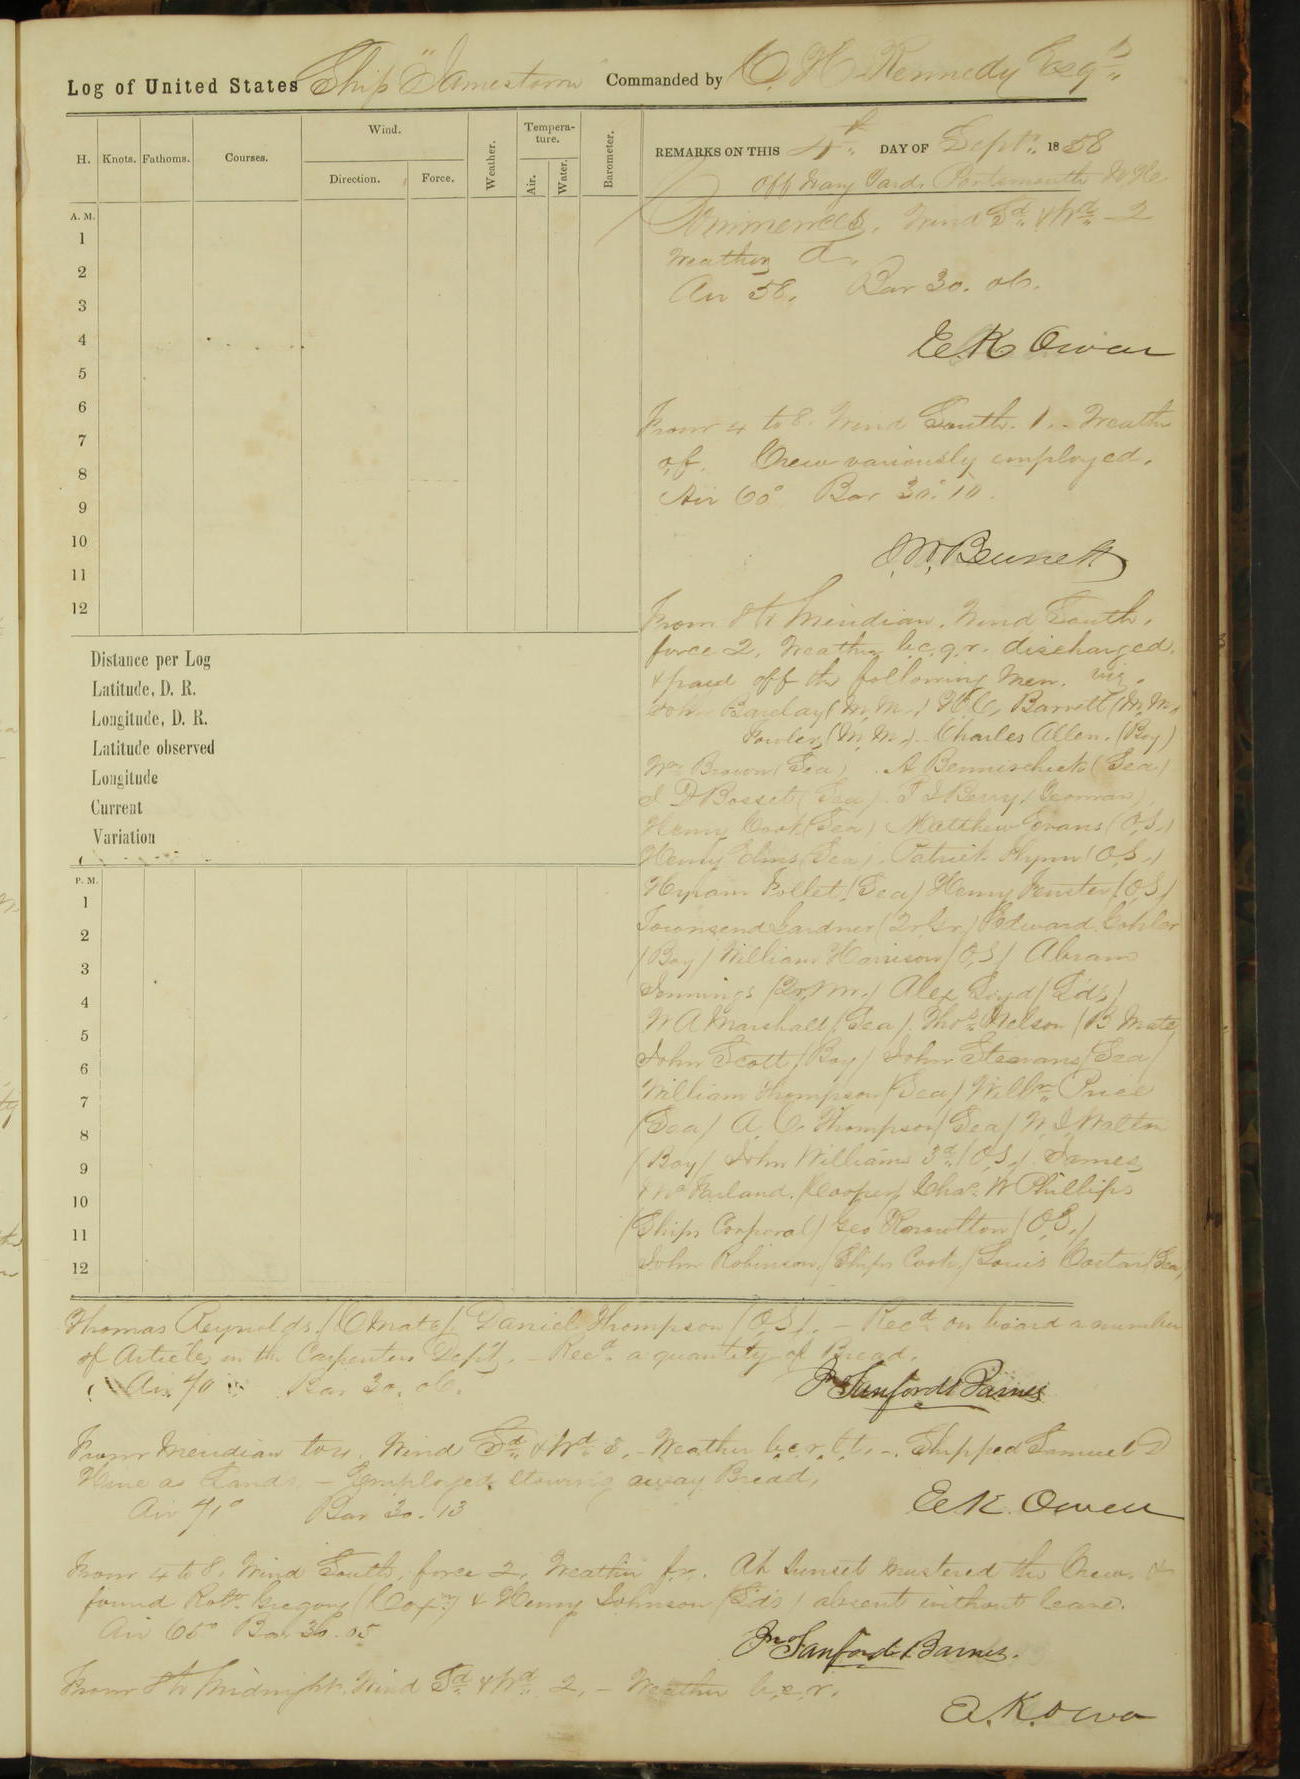 Log of United States Ship "Jamestown" Commanded by C. H. Kennedy Esqr
H. Knots. Fathoms. Courses. Wind. Direction. Force. Weather. Temperature. Air. Water. Barometer.
REMARKS ON THIS 4th DAY OF Septr. 1858
Off Navy Yard, Portsmouth N. H.
A. M.
1
2
3
4
5
6
7
8
9
10
11
12
Commences, Wind Sd & Wd - 2
Weather
Air 58. Bar 30. 06.
E K Owen
From 4 to 8. Wind South. 1. - Weather
o,f. Crew variously employed.
Air 60° Bar 30. 10.
From 8 to Meridian. Wind South.
force 2. Weather b.c.q.r. discharged
& paid off the following Men. viz.
John Barclay (M.M.) H C. Barrett (M.M.)
Fowler, (M.M.) - Charles Allen. (Boy)
Wm Brown (Sea) A (Sea)
J D Bosset (Sea). T J Berry (Yeoman)
Henry Cook (Sea) Matthew Evans (O.S.)
Henry Elms (Sea). Patrick Flynn (O.S.)
Hyram Follet (Sea) Henry (O.S)
Townsend Gardner (Qr Gr) Edward Gohler
(Boy) William Harrison (O.S) Abram
Jennings (Qr. Mr.) Alex Loyd (Lds)
W A Marshall (Sea). Thos Nelson (B Mate)
John Scott (Boy) John Steavans (Sea)
William Thompson (Sea) Willm Price
(Sea) A. C. Thompson (Sea) W. J. Walton
(Boy) John Williams 3d (O.S.) James
McFarland. (Cooper) Chas. W Phillips
(Ships Corporal) Geo (O.S.)
John Robinson (Ships Cook) Louis (Sea)
Distance per Log
Latitude, D. R.
Longitude, D. R.
Latitude observed
Longitude
Current
Variation
P. M.
1
2
3
4
5
6
7
8
9
10
11
12
Thomas Reynolds (C Mate) Daniel Thompson (O.S). - Recd on board a number
of Articles in the Carpenters Dept. - Recd a quantity of Bread.
Air 70 Bar 30. 06.
Jn Sanford Barnes
From Meridian to 4. Wind Sd & Wd - Weather b.c.r.l.t. -. Shipped Samuel D
as Lands. - Employed stowing away Bread,
Air 71° Bar 30. 13
E K. Owen
From 4 to 8. Wind South, force 2, Weather f.r. At Sunset mustered the Crew. &
found Robt. Gregory (Coxn) & Henry Johnson (Lds) absent without leave.
Air 65° Bar 30. 05
Jn Sanford Barnes.
From 8 to Midnight. Wind Sd & Wd 2, - Weather b.c.r.
E. K. Owen